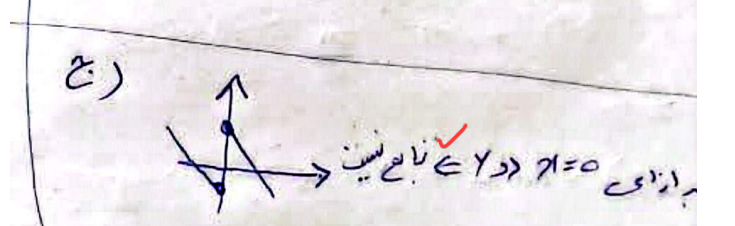 ج)
به ازای x=0 دو y ⇐ تابع نیست